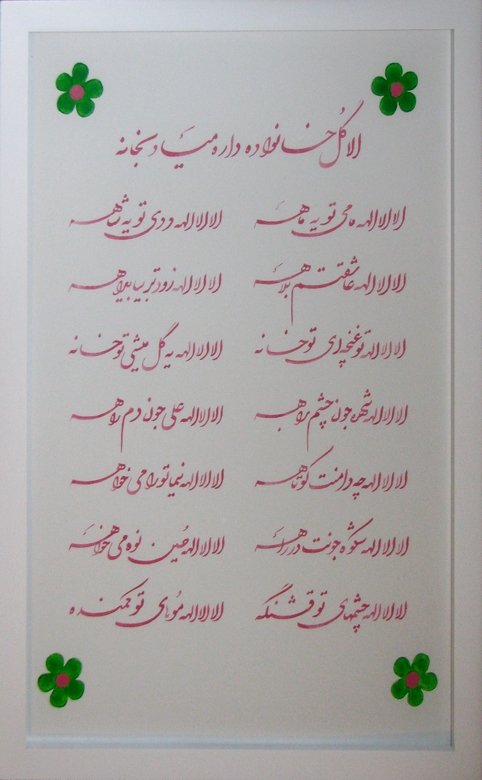 الا گل خانواده داره میاد بخانه
لا لا لا لاله مامی تو یه ماهه لا لا لا لاله ددی تو یه شاهه
لا لا لا لاله عاشقتم بلاهه لا لا لا لاله زودتر بیا بلاهه
لا لا لا لاله تو غنچه‌ای تو خانه لا لا لا لاله یه گل میشی تو خانه
لا لا لا لاله جون چشم براهه لا لا لا لاله علی جون دم راهه
لا لا لا لاله چه دامنت کوتاهه لا لا لا لاله نیما تو را می خواهه
لا لا لا لاله شکوه جونت در راهه لا لا لا لاله حسین نوه می خواهه
لا لا لا لاله چشمهای تو قشنگه لا لا لا لاله موهای تو کمنده